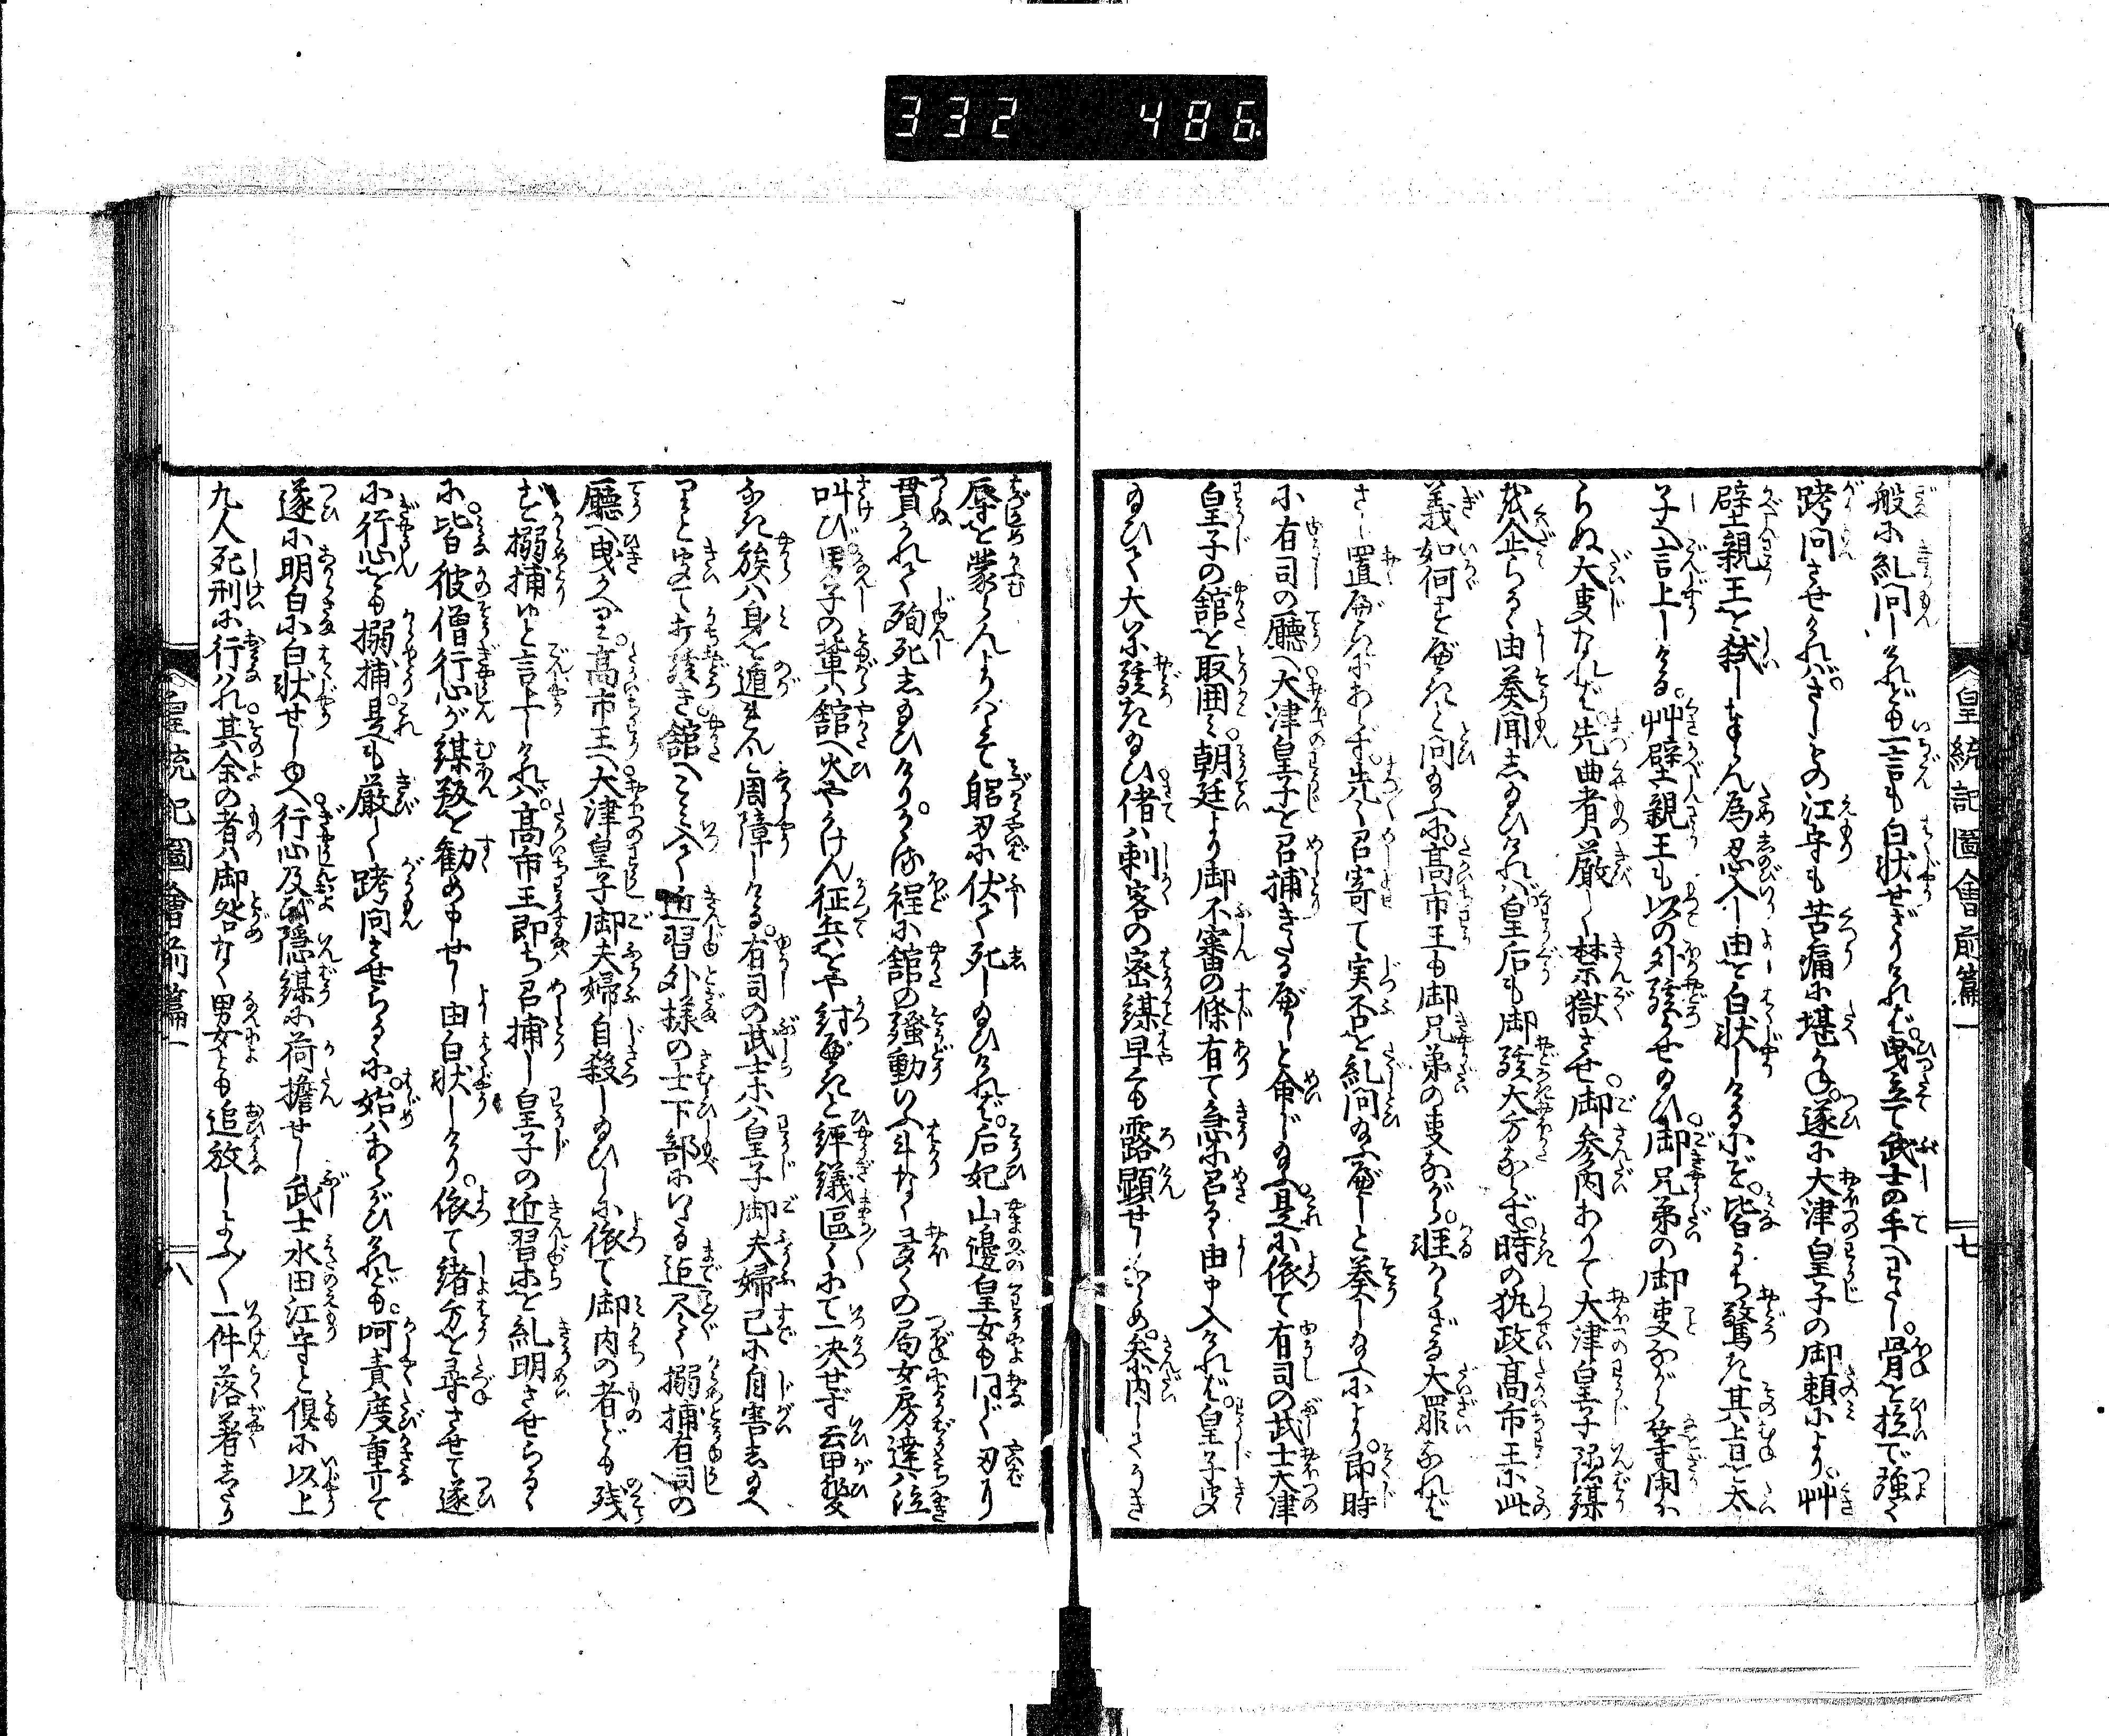 332 486
皇統記圖會前篇一 七
般に糺問しけれども一言も白状せざりければ。曳立て武士の手へわたし。骨を拉で強く
拷問させければ。さしもの江守も苦痛に堪かね。遂に大津皇子の御頼により。艸
壁親王を弑しまゐらん為忍入し由を白状しけるにぞ。皆々うち驚き其旨を太
子へ言上しける。艸壁親王も以の外駭かせ給ひ。御兄弟の御事ながら等閑な
らぬ大事なれば。先曲者は厳しく禁獄させ。御参内ありて大津皇子隠謀
我企らるゝ由奏聞し給ひければ。皇后も御駭大方ならず。時の執政高市王に此
義如何すべきと問給ふに。高市王も御兄弟の事ながら。軽からざる大罪なれば
さし置べきにあらず。先々召寄て実否を糺問給ふべしと奏し給ふにより。即時
に有司の廳へ大津皇子を召捕きたるべしと命じ給ふ。是に依て有司の武士大津
皇子の舘を取囲み。朝廷より御不審の條有て急に召るゝ由申入ければ。皇子聞
給ひて大に駭き給ひ偖は刺客の密謀早くも露顕せしならめ。参内してうき
辱を蒙らんよりはとて躬刃に伏て死し給ひければ。后妃山邊皇女も同じく刃に
貫かれて殉死し給ひけり。かゝる程に舘の騒動いふ斗なく多くの局女房達は泣
叫び。男子の輩は舘へ火やかけん征兵をや討べきと評議區々にて一决せず云甲斐
なき族は身を遁れんと周障しける。有司の武士等は皇子御夫婦已に自害し給へ
りと聞て打駭き。舘へこみ入て近習外様の士下部にいたる迄尽く搦捕有司の
廳へ曳かへり。高市王へ大津皇子御夫婦自殺し給ひしに依て御内の者ども残
ず搦捕ゆと言上しければ。高市王即ち召捕し皇子の近習等を糺明させらるゝ
に。皆彼僧行心が謀叛を勧め申せし由白状しけり。依て諸方を尋させて遂
に行心をも搦捕。是も厳しく拷問させらるゝに。始はあらがひけれども。呵責度重りて
遂に明白に白状せしゆへ。行心及び隠謀に荷擔せし武士水田江守と倶に以上
九人死刑に行はれ其余の者は御咎なく男女とも追放しこゝに一件落着したり
皇統記圖會前篇一 八